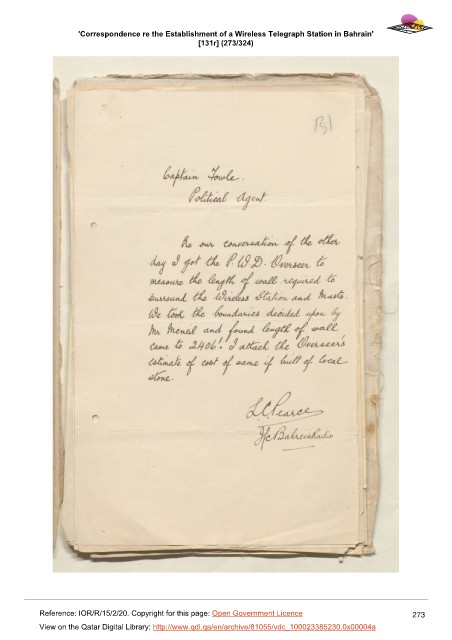 'Correspondence re the Establishment of a Wireless Telegraph Station in Bahrain'
[131r] (273/324)
131
Captain Fowle.
Political Agent.
Re our conversation of the other
day I got the P.W.D. Overseer to
measure the length of wall required to
surround the Wireless Station and Masts.
We took the boundaries decided upon by
Mr Meneil and found length of wall
came to 2406! I attach the Overseer's
estimate of cost of same if built of local
stone.
L.C. Pearce
I/c Bahreinradio
Reference: IOR/R/15/2/20. Copyright for this page: Open Government Licence
View on the Qatar Digital Library: http://www.qdl.qa/en/archive/81055/vdc_100023385230.0x00004a
273